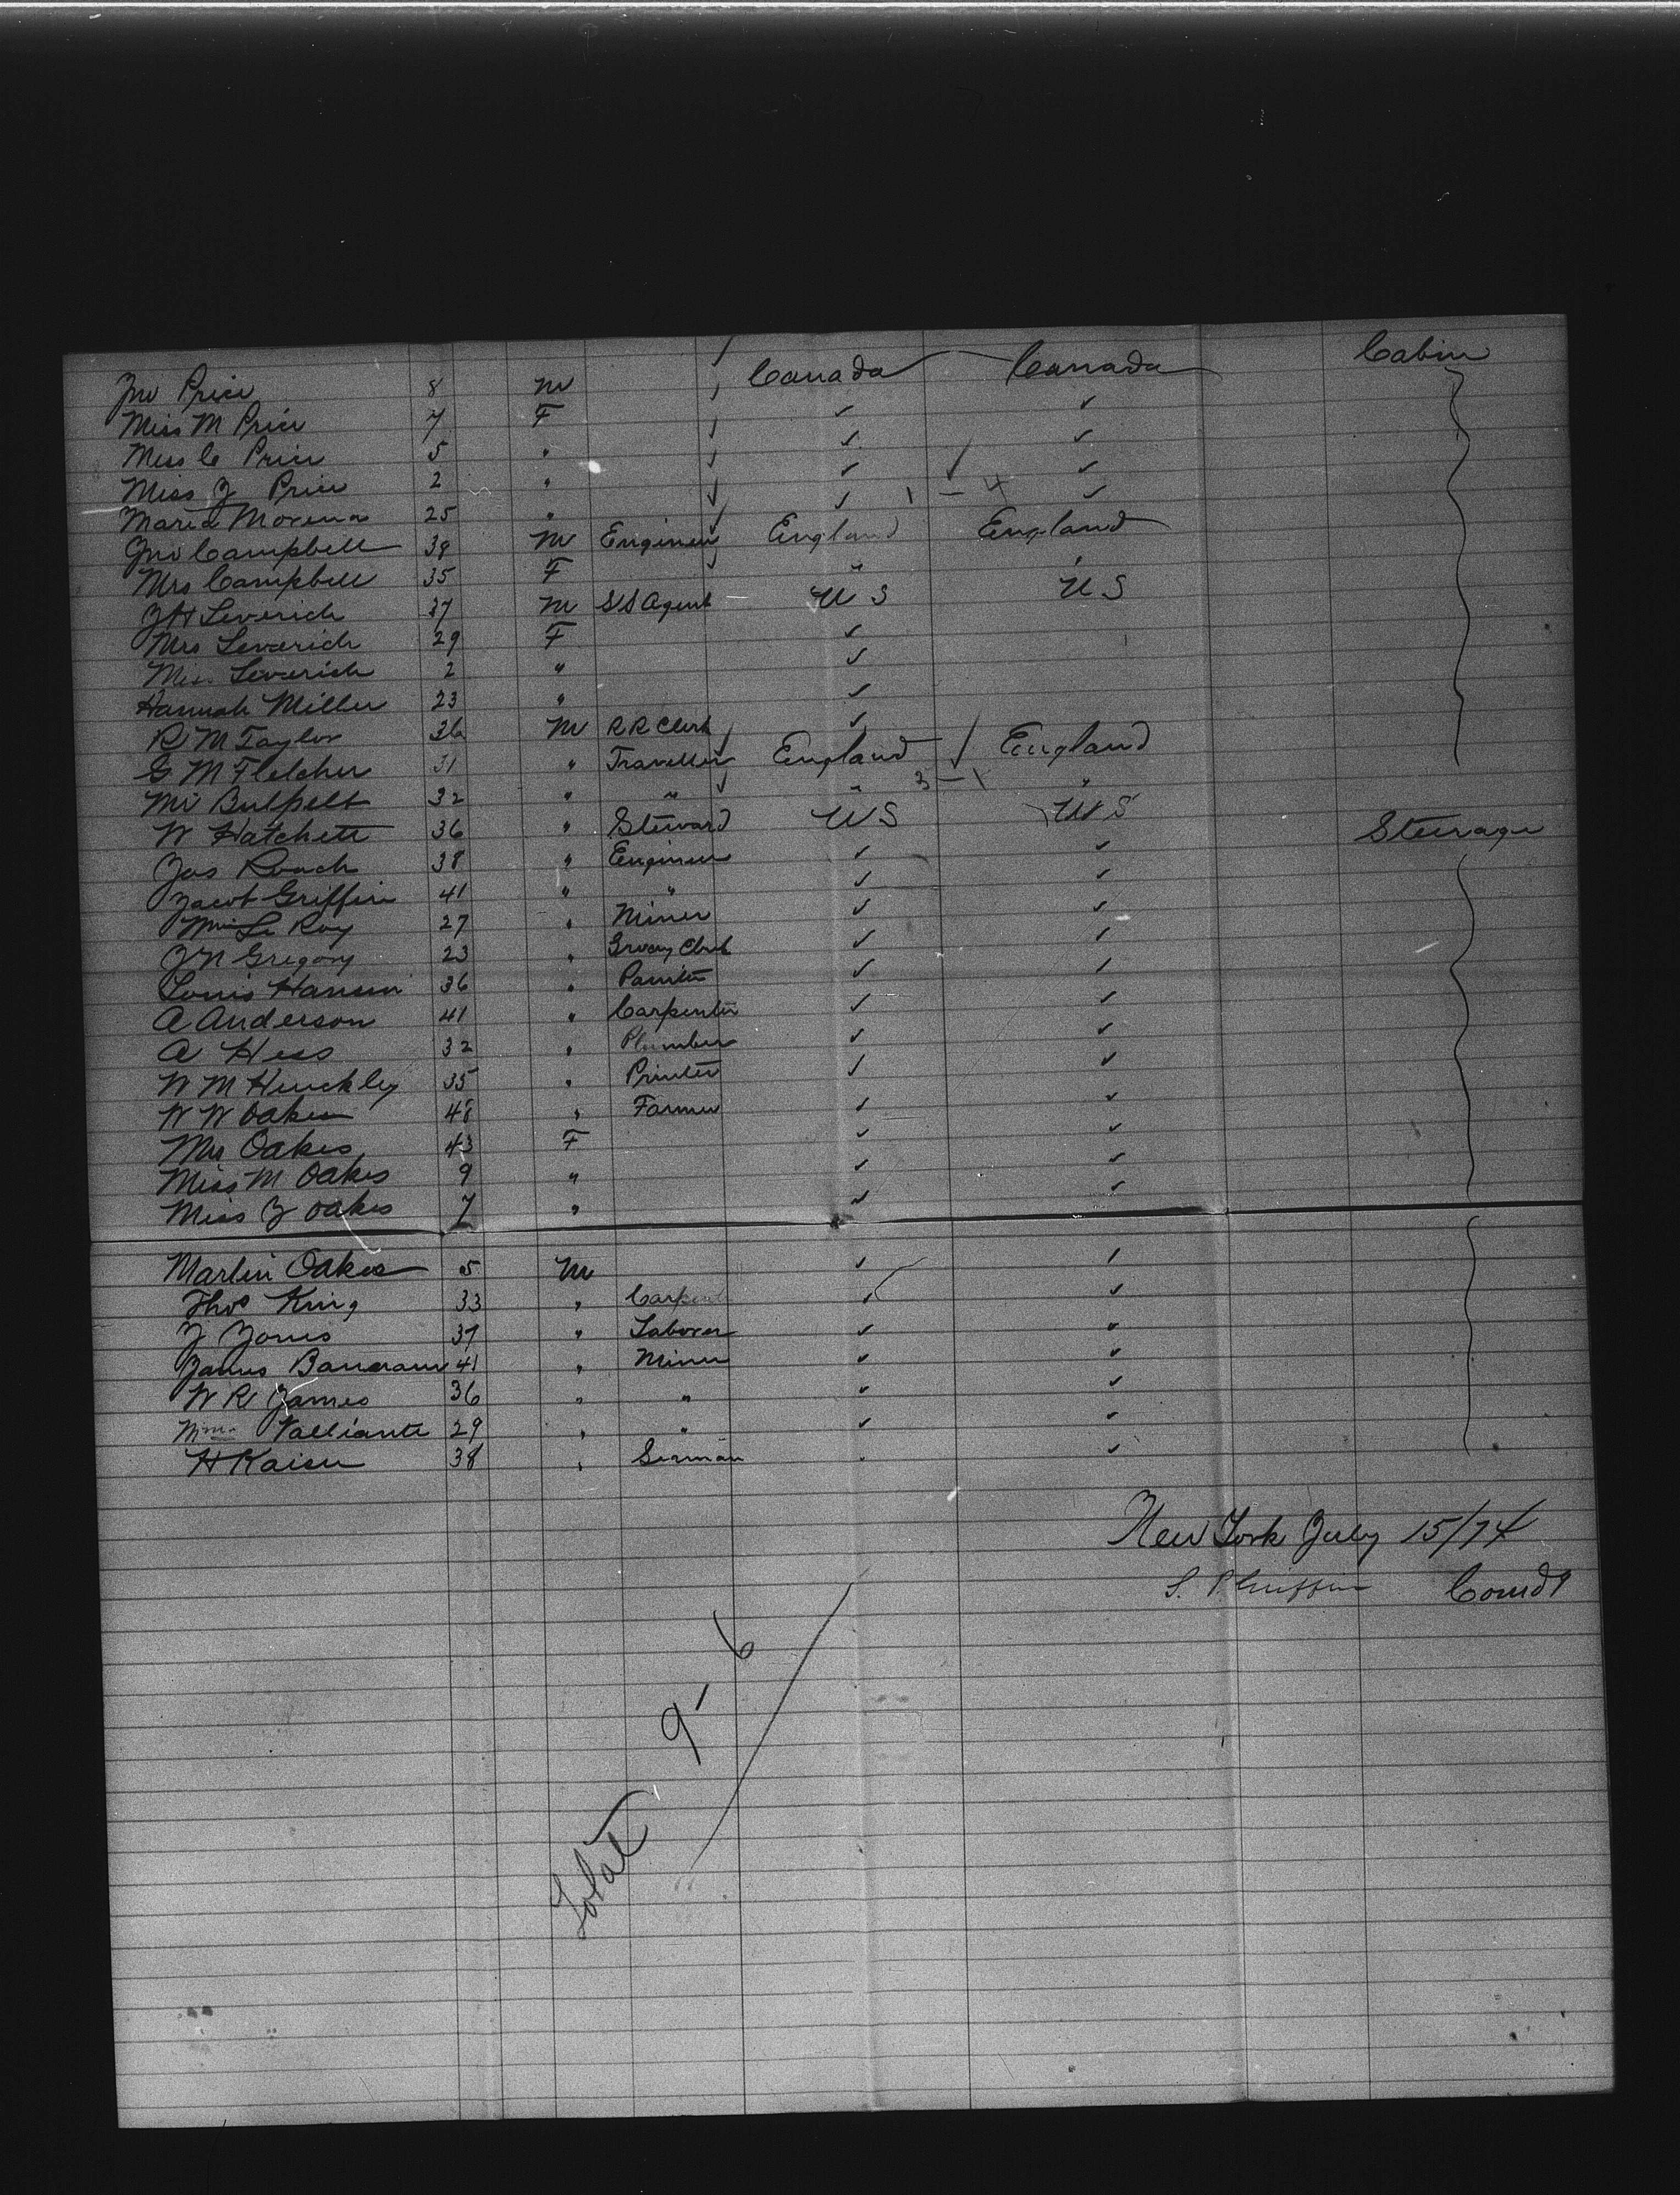 Jno Price 8 M Canada Canada Cabin
Miss M Price 7 F ✓ ✓
Miss C Price 5 " ✓ ✓
Miss J Price 2 " ✓ ✓
Maria Morena 25 " ✓ 1 – 4 ✓
Jno Campbell 38 M Engineer England England
Mrs Campbell 35 F " "
J H Leverich 37 M SS Agent U S U S
Mrs Leverich 29 F ✓
Miss Leverich 2 " ✓
Hannah Miller 23 " ✓
R M Taylor 36 M R R Clerk ✓
G M Fletcher 31 " Traveller England England
Mr Bulpelt 32 " " " 3 – 1 "
W Hatchett 36 " Steward U S U S Steerage
Jas Roach 38 " Engineer ✓ ✓
Jacob Griffin 41 " " ✓ ✓
Wm Le Roy 27 " Miner ✓ ✓
J N Gregory 23 " Grocery Clerk ✓ ✓
Louis Hansen 36 " Painter ✓ ✓
A Anderson 41 " Carpenter ✓ ✓
A Hess 32 " Plumber ✓ ✓
W M Hinckley 35 " Printer ✓ ✓
W W Oakes 48 " Farmer ✓ ✓
Mrs Oakes 43 F ✓ ✓
Miss M Oakes 9 " ✓ ✓
Miss J Oakes 7 " ✓ ✓
Martin Oakes 5 M ✓ ✓
Thos King 33 " Carpent ✓ ✓
J Jones 37 " Laborer ✓ ✓
James 41 " Miner ✓ ✓
W R James 36 " " ✓ ✓
Wm Valliante 29 " " ✓ ✓
H Kaiser 38 " ✓
New York July 15/74
S. P. Griffin Comdg
Total 9 – 6